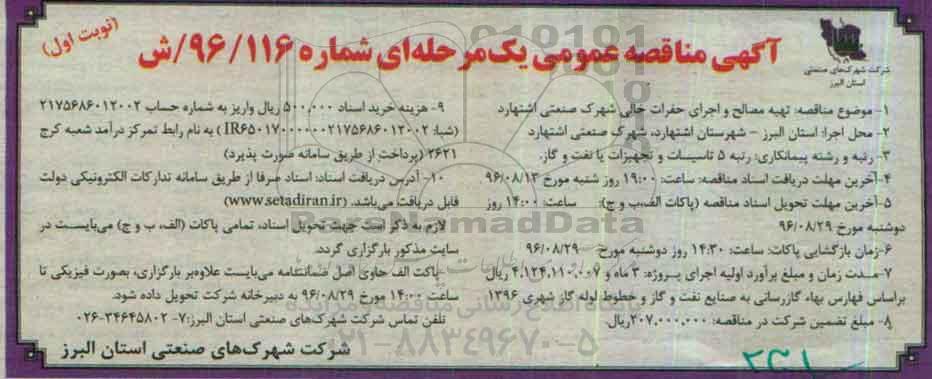 آگهی مناقصه عمومی یک‌مرحله‌ای شماره ۹۶/۱۱۶/ش
(نوبت اول)
شرکت شهرک‌های صنعتی
استان البرز
۱- موضوع مناقصه: تهیه مصالح و اجرای حفرات خالی شهرک صنعتی اشتهارد
۲- محل اجرا: استان البرز - شهرستان اشتهارد، شهرک صنعتی اشتهارد
۳- رتبه و رشته پیمانکاری: رتبه ۵ تاسیسات و تجهیزات یا نفت و گاز.
۴-آخرین مهلت دریافت اسناد مناقصه: ساعت: ۱۹:۰۰ روز شنبه مورخ ۹۶/۰۸/۱۳
۵-آخرین مهلت تحویل اسناد مناقصه (پاکات الف،ب و ج): ساعت: ۱۴:۰۰ روز
دوشنبه مورخ ۹۶/۰۸/۲۹
۶-زمان بازگشایی پاکات: ساعت: ۱۴:۳۰ روز دوشنبه مورخ ۹۶/۰۸/۲۹
۷-مدت زمان و مبلغ برآورد اولیه اجرای پروژه: ۳ ماه و ۴,۱۲۴,۱۱۰,۰۰۷ ریال
براساس فهارس بهاء گازرسانی به صنایع نفت و گاز و خطوط لوله گاز شهری ۱۳۹۶
۸- مبلغ تضمین شرکت در مناقصه: ۲۰۷,۰۰۰,۰۰۰ریال
۹- هزینه خرید اسناد ۵۰۰,۰۰۰ ریال واریز به شماره حساب ۲۱۷۵۶۸۶۰۱۲۰۰۲
(شبا: IR۶۵۰۱۷۰۰۰۰۰۰۰۲۱۷۵۶۸۶۰۱۲۰۰۲) به نام رابط تمرکز درآمد شعبه کرج
۲۶۲۱ (پرداخت از طریق سامانه صورت پذیرد)
۱۰- آدرس دریافت اسناد: اسناد صرفا از طریق سامانه تدارکات الکترونیکی دولت
قابل دریافت می‌باشد. (www.setadiran.ir)
لازم به ذکر است جهت تحویل اسناد، تمامی پاکات (الف، ب و ج) می‌بایست در
سایت مذکور بارگزاری گردد.
پاکت الف حاوی اصل ضمانتنامه می‌بایست علاوه‌بر بارگزاری، بصورت فیزیکی تا
ساعت ۱۴:۰۰ مورخ ۹۶/۰۸/۲۹ به دبیرخانه شرکت تحویل داده شود.
تلفن تماس شرکت شهرک‌های صنعتی استان البرز:۷- ۳۴۶۴۵۸۰۲-۰۲۶
شرکت شهرک‌های صنعتی استان البرز
ParsNamadData
۰۲۱-۸۸۳۴۹۶۷۰-۵